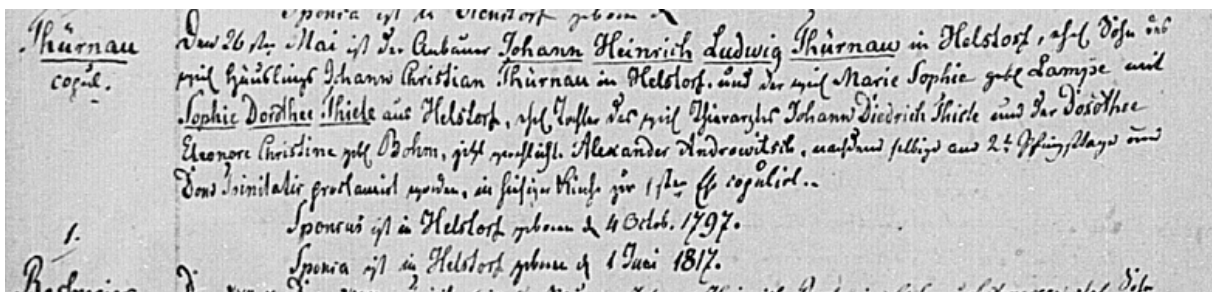 Sponsa ist in Helstorf geboren d
Thürnau
copul.
Den 26sten Mai ist der Anbauer Johann Heinrich Ludwig Thürnau in Helstorf, ehel Sohn des
weil Häuslings Johann Christian Thürnau in Helstorf und der weil Marie Sophie geb Lampe mit
Sophie Dorothee Thiele aus Helstorf, ehel Tochter des weil Thierarztes Johann Diedrich Thiele und der Dorothee
Eleonore Christine geb Bohm, jetzt verehlicht. Alexander Androwitsch, nachdem selbige am 2t Pfingsttage und
Dom Trinitatis proclamirt worden, in hiesiger Kirche zur 1sten Ehe copulirt.
Sponsus ist in Helstorf geboren d 4 Octob. 1797.
1.
Sponsa ist in Helstorf geboren d 1 Juni 1817.